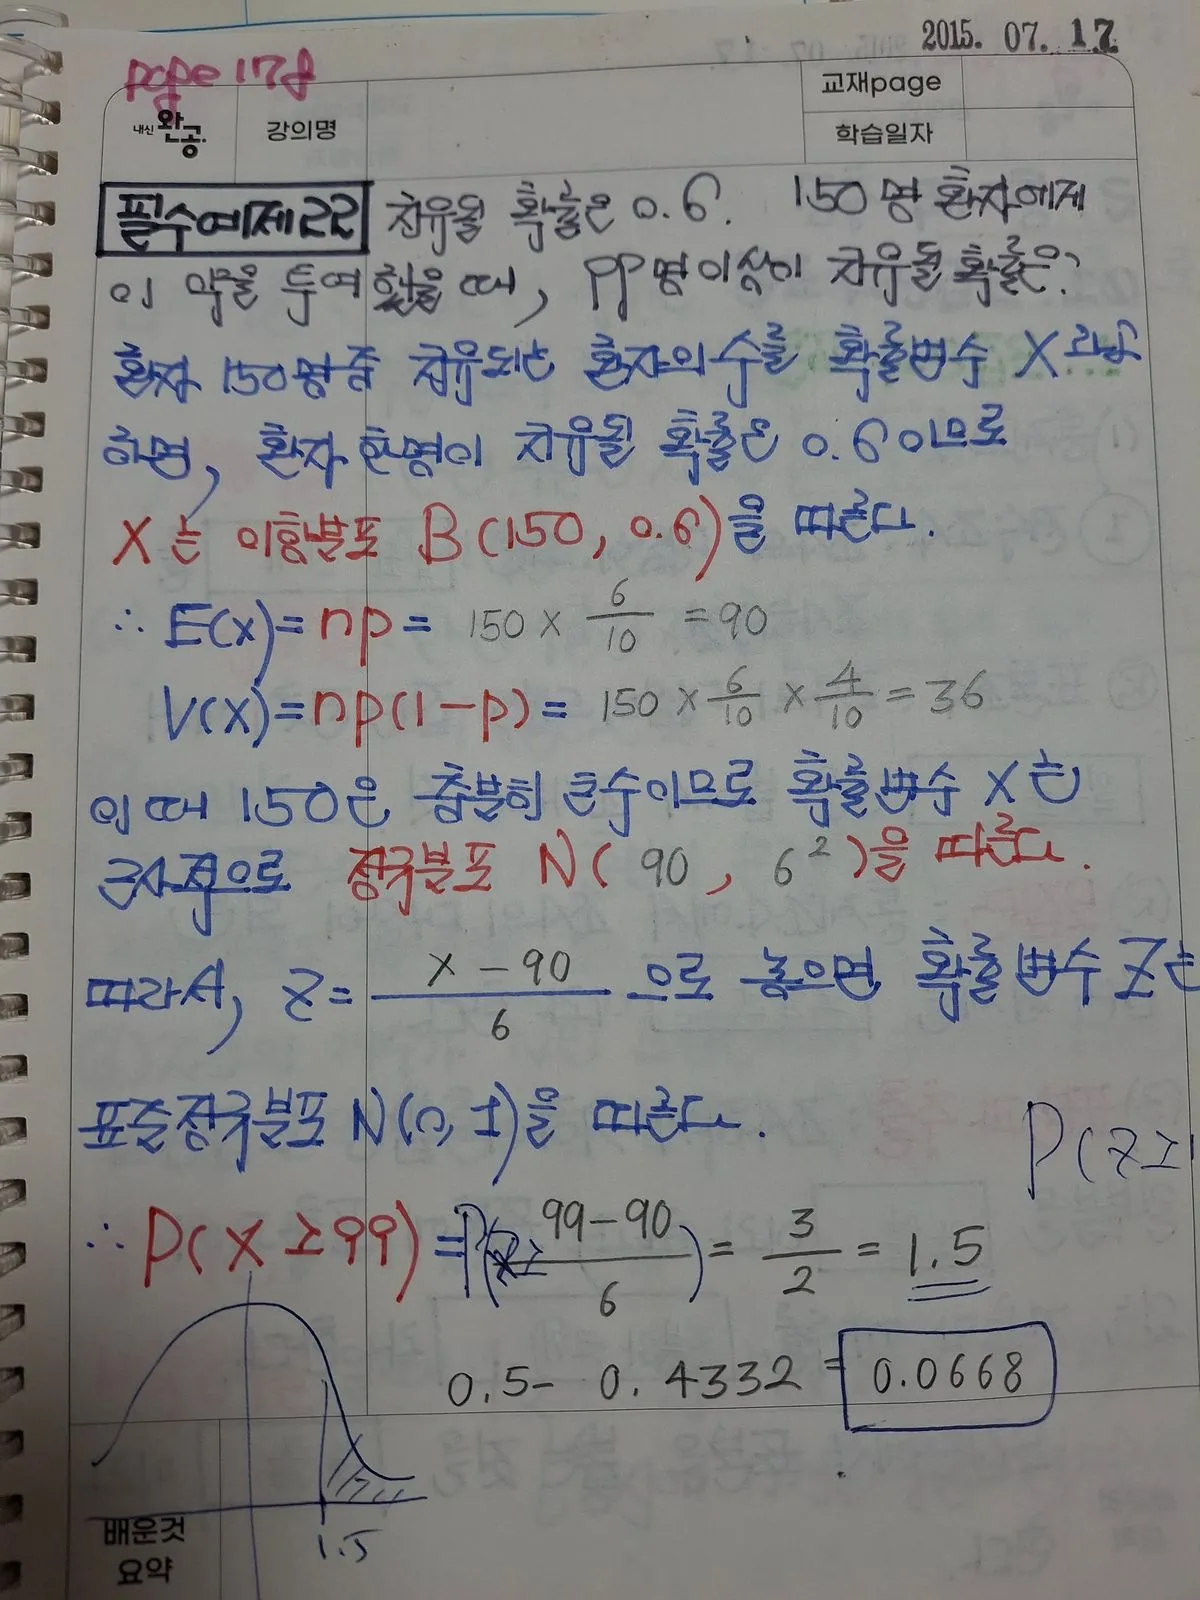 2015. 07. 17
page 178
교재page
내신 완공.
강의명
학습일자
필수예제22 치유될 확률은 0.6. 150명 환자에게
이 약을 투여했을 때, 99명이상이 치유될 확률은?
환자 150명중 치유되는 환자의 수를 확률변수 X라고
하면, 환자 한명이 치유될 확률은 0.6이므로
X는 이항분포 B(150, 0.6)을 따른다.
∴ E(x)=np= 150 × 6/10 = 90
V(X)=np(1-p)= 150 × 6/10 × 4/10 = 36
이때 150은 충분히 큰수이므로 확률변수 X는
근사적으로 정규분포 N( 90 , 6² )을 따른다.
따라서, Z= X-90/6 으로 놓으면 확률변수 Z는
표준정규분포 N(0, 1)을 따른다.
P(Z≥1
∴ P(X≥99) =P(Z≥ 99-90/6) = 3/2 = 1.5
0.5- 0.4332 = 0.0668
1.5
배운것
요약